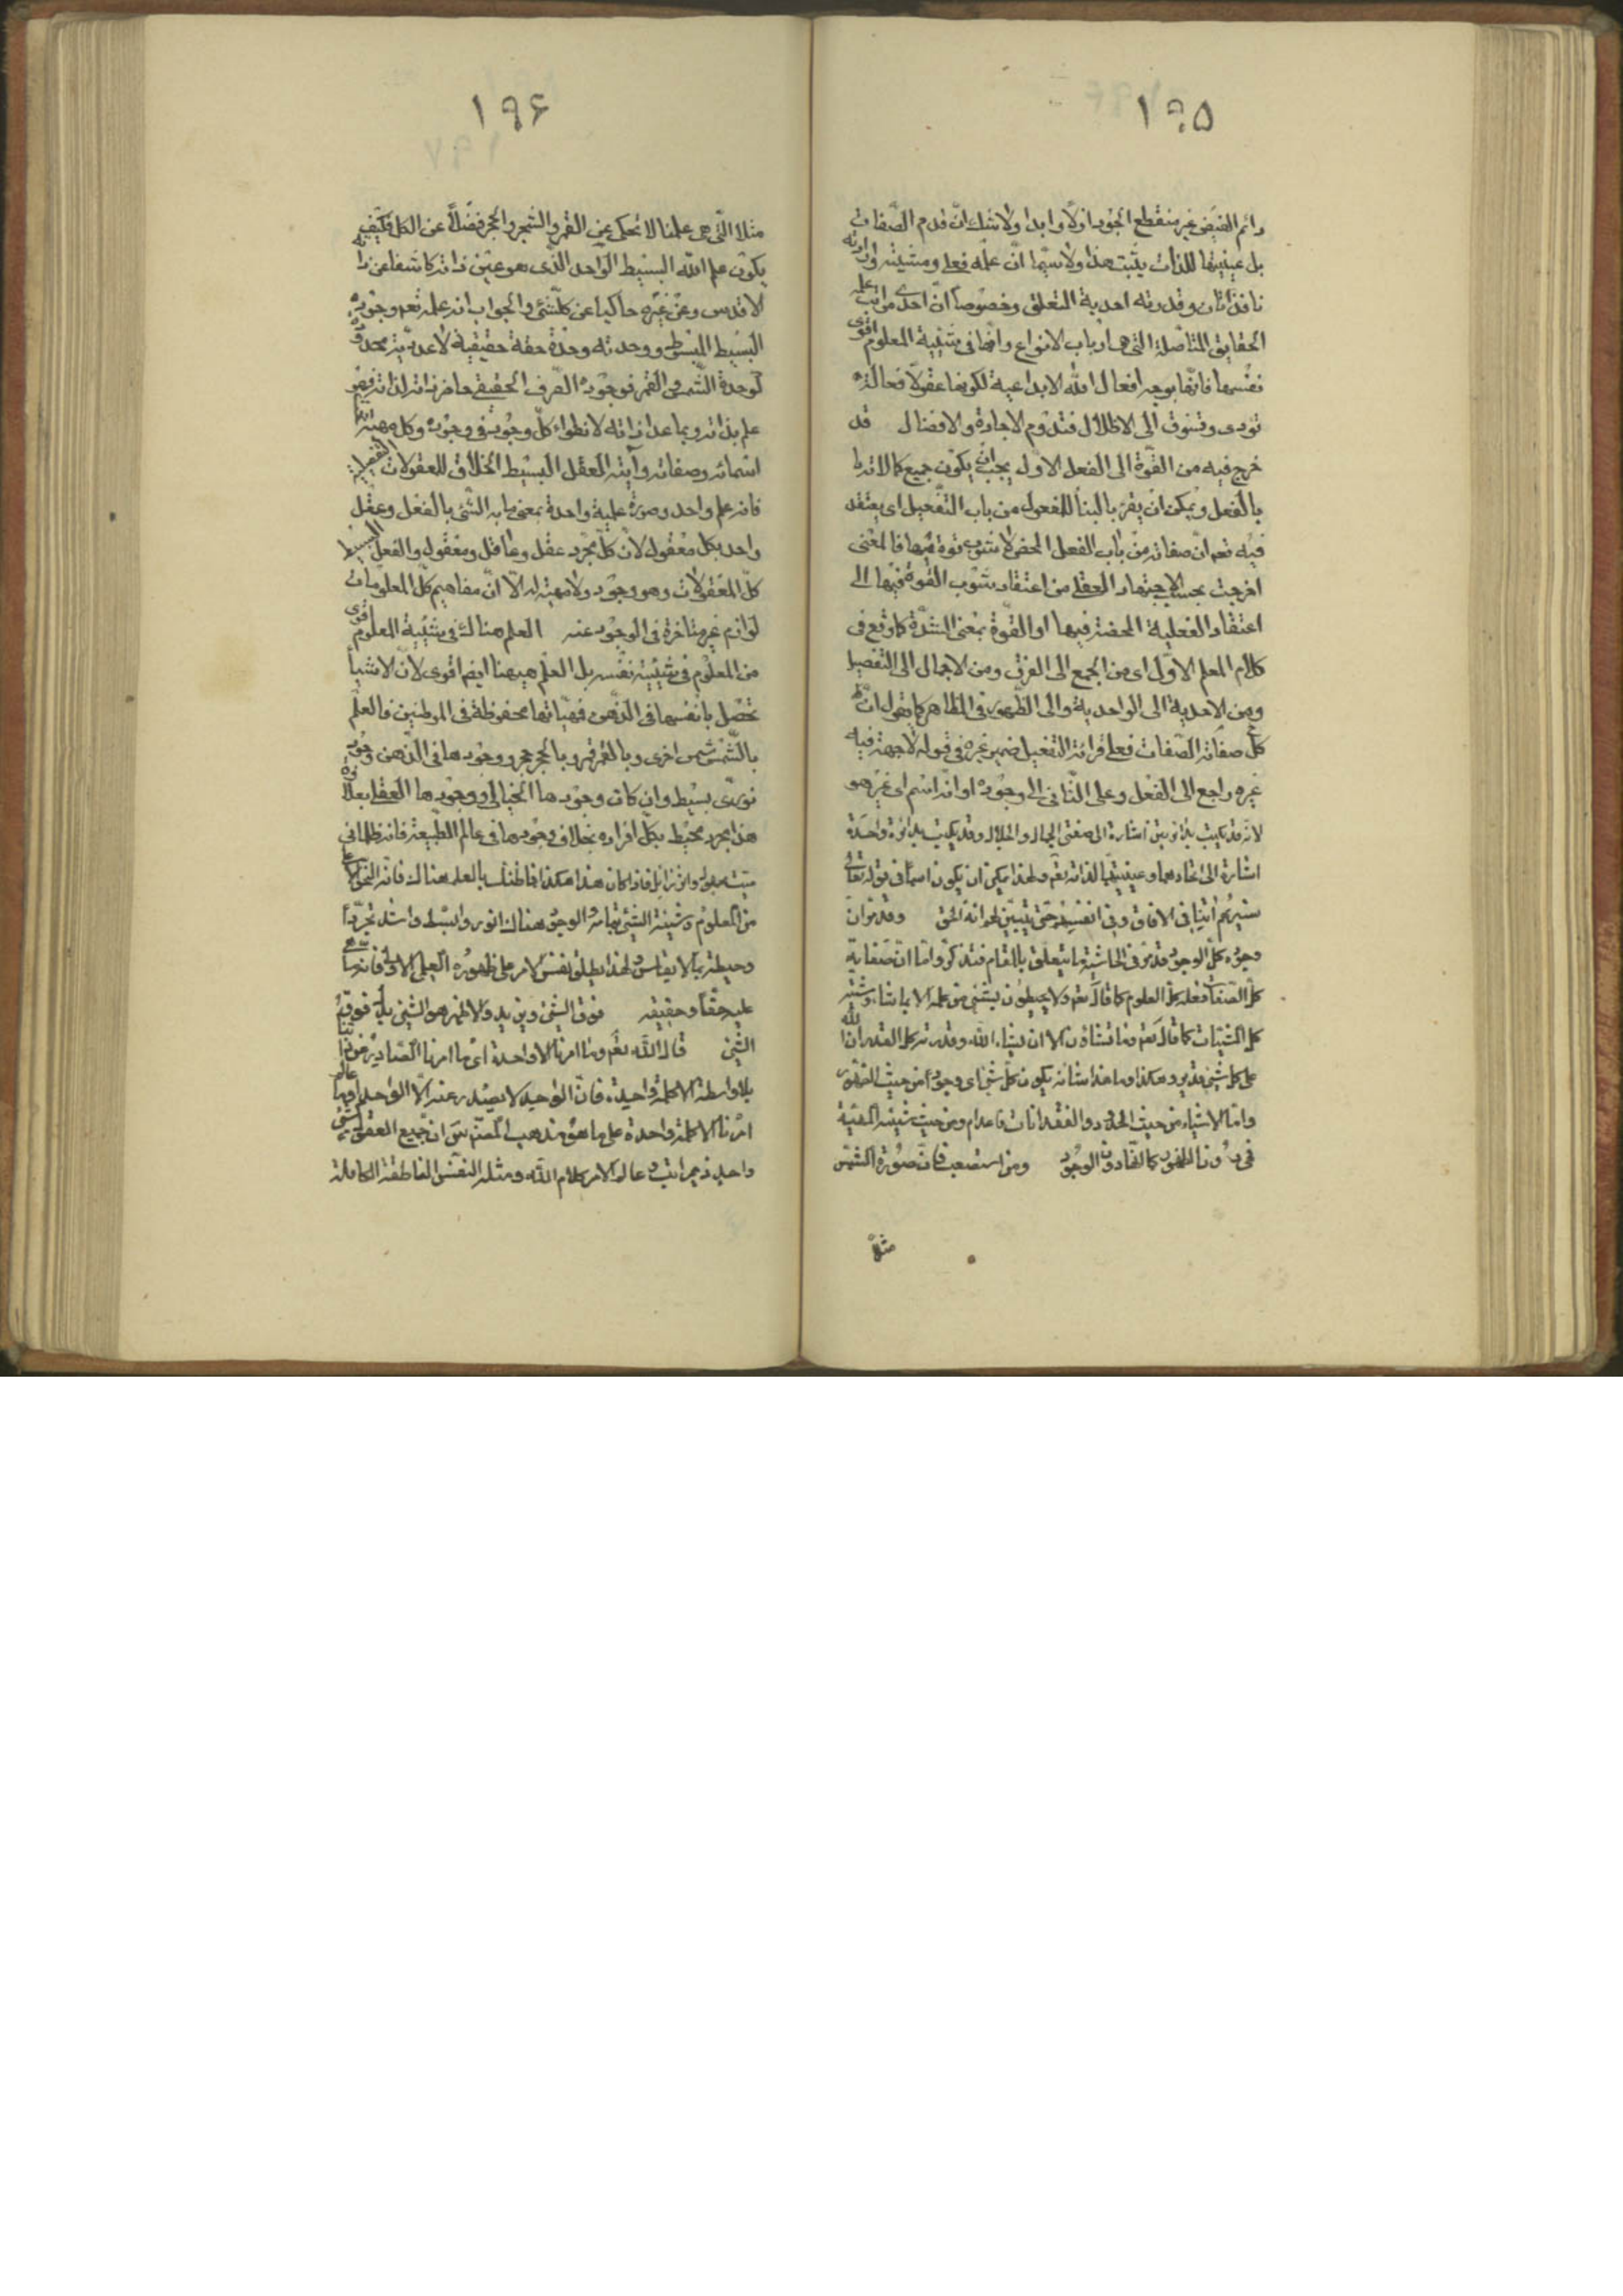 ١٩٥
دائم الفيض غير منقطع الجود ازلا وابدا ولا شك ان قدم الصفات
بل عينيتها للذات يثبت هذا ولا سيما ان علمه فعلى ومشيته وارادته
نافذتان وقدرته احدية المتعلق وخصوصا ان احدى مراتب علمه
الحقايق المتاصلة التى هى ارباب الانواع وانها فى شيئية المعلوم اقوى
نفسها فانها بوجه افعال الله الابداعية لكونها عقولا فعالة
تودى وتسوق الى الاظلال فتدوم الاجادة والافضال قد
خرج فيه من القوة الى الفعل الاول يجب ان يكون جميع كمالاته
بالفعل ويمكن ان يقرء بالبناء للمفعول من باب التفعيل اى يعتقد
فيه نعم ان صفاته من باب الفعل المحض لا شوب قوة فيها فالمعنى
اخرجت بحسب الاجتهاد العقلى من اعتقاد شوب القوة فيها الى
اعتقاد الفعلية المحضة فيها او القوة بمعنى الشدة كما وقع فى
كلام المعلم الاول اى من الجمع الى الفرق ومن الاجمال الى التفصيل
ومن الاحدية الى الواحدية والى الظهور فى المظاهر كما يقول ان
كل صفاته الصفات فعلى قرائة التفعيل ضمير غيره فى قوله لا جهة فيه
غيره راجع الى الفعل وعلى الثانى الى وجوده او انه اسم اى غير هو
لانه قد يكتب بدائرتين اشارة الى صفتى الجمال والجلال وقد يكتب بدائرة واحدة
اشارة الى اتحادهما وعينيتهما لذاته تعم ولهذا يمكن ان يكون اسما فى قوله تعالى
سنريهم آيتنا فى الافاق وفى انفسهم حتى يتبين لهم انه الحق وقد مر ان
وجوده كل الوجود قد مر فى الحاشية ما يتعلق بالمقام فتذكر واما ان صفاته
كل الصفات فعلمه كل العلوم كما قال تعم ولا يحيطون بشئ من علمه الا بما شاء ومشيته
كل المشيات كما قال تعم وما تشاؤن الا ان يشاء الله وقدرته كل القدر ان الله
على كل شئ قدير وهكذا وما هذا شانه يكون كل شئ اى وجود من حيث الظهور
واما الاشياء من حيث الحدود والفقدانات فاعدام ومن حيث شيئية المهية
فى دون الظهور كما انها دون الوجود ومن استصعب فان صورة الشمس
مثلا
١٩۶
مثلا التى هى علمنا لا تحكى عن القمر والشجر والحجر فضلا عن الكل فكيف
يكون علم الله البسيط الواحد الذى هو عين ذاته كاشفا عن ذاته
الاقدس وعن غيره حاكيا عن كل شئ والجواب ان علمه تعم وجوده
البسيط المبسوط ووحدته وحدة حقة حقيقية لا عددية محدودة
كوحدة الشمس والقمر فوجوده الصرف الحقيقى حاضر ذاته لذاته فهو
علم بذاته وبما عدا ذاته لانطواء كل وجود فى وجوده وكل مهية
اسمائه وصفاته وآيته العقل البسيط الخلاق للمعقولات التفصيلية
فانه علم واحد وصورة علمية واحدة بمعنى ما به الشئ بالفعل وعقل
واحد بكل معقول لان كل مجرد عقل وعاقل ومعقول والفعل البسيط
كل المعقولات وهو وجود ولا مهية له الا ان مفاهيم كل المعلومات
لوازم غير متاخرة فى الوجود عنه العلم هناك فى شيئية المعلوم اقوى
من المعلوم فى شيئية نفسه بل العلم هيهنا ايضا اقوى لان الاشياء
تحصل بانفسها فى الذهن فمهياتها محفوظة فى الموطنين فالعلم
بالشمس شمس اخرى وبالقمر قمر وبالحجر حجر ووجودها فى الذهن وجود
نورى بسيط وان كان وجودها الخيالى ووجودها العقلى
هذا مجرد محيط بكل افراده بخلاف وجودها فى عالم الطبيعة فانه ظلمانى
ميت مجهول فاذا كان هذا هكذا فما ظنك بالعلم هناك فانه النحو الاعلى
من المعلوم وشيئية الشئ بتمامه والوجود هناك انور وابسط واشد تجردا
وحيطة بما لا يقاس ولهذا يطلق نفس الامر على ظهوره العلمى الاول فانه
عليه حقا وحقيقة فوق الشئ ويزيد والاظهر هو الشئ بل فوق
الشئ قال الله تعم وما امرنا الا واحدة اى ما امرنا الصادر من ذاتنا
بلا واسطة الا كلمة واحدة فان الواحد لا يصدر عنه الا الواحد او ما عالم
امرنا الا كلمة واحدة على ما هو مذهب المقدس ان جميع العقول شئ
واحد ذو مراتب وعالم الامر كلام الله ومثله النفس الناطقة الكاملة